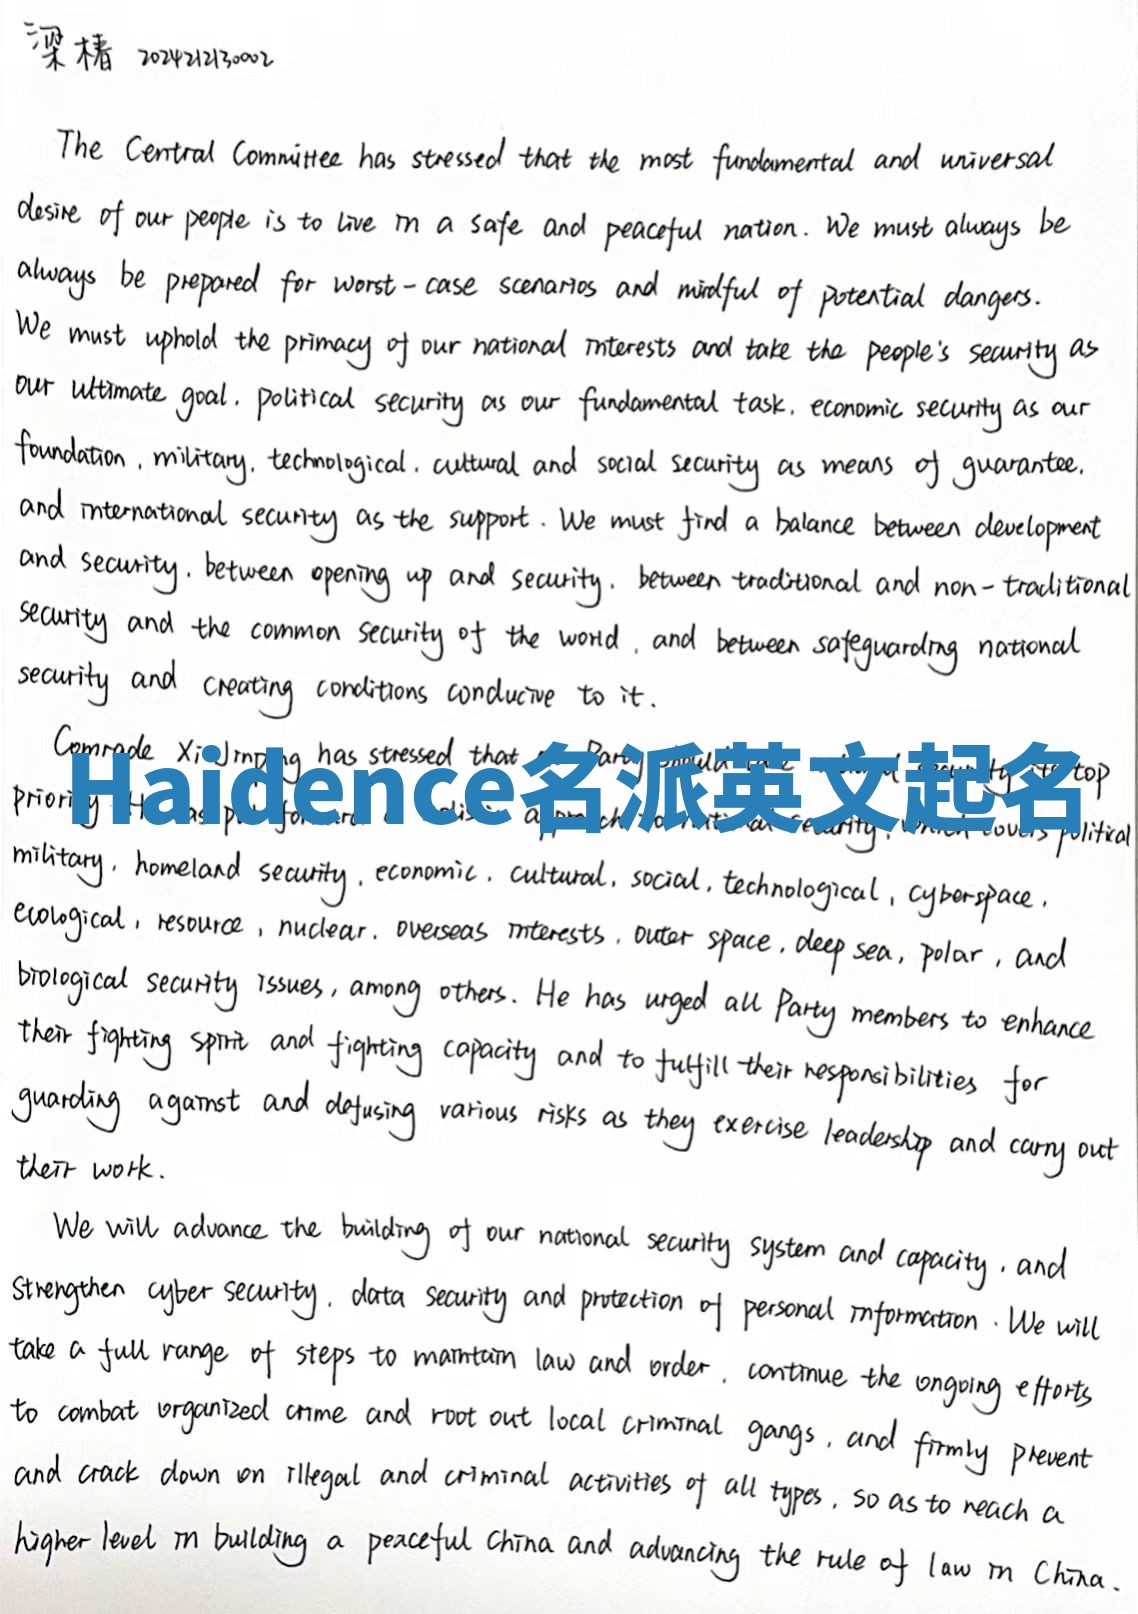 梁椿 2024212130002
The Central Committee has stressed that the most fundamental and universal
desire of our people is to live in a safe and peaceful nation. We must always be
always be prepared for worst-case scenarios and mindful of potential dangers.
We must uphold the primacy of our national interests and take the people's security as
our ultimate goal, political security as our fundamental task, economic security as our
foundation, military, technological, cultural and social security as means of guarantee,
and international security as the support. We must find a balance between development
and security, between opening up and security, between traditional and non-traditional
security and the common security of the world, and between safeguarding national
security and creating conditions conducive to it.
Comrade Xi Jinping has stressed that Party should security its top
Haidence名派英文起名
priority. approach to national security, which covers political
military, homeland security, economic, cultural, social, technological, cyberspace,
ecological, resource, nuclear, overseas interests, outer space, deep sea, polar, and
biological security issues, among others. He has urged all Party members to enhance
their fighting spirit and fighting capacity and to fulfill their responsibilities for
guarding against and defusing various risks as they exercise leadership and carry out
their work.
We will advance the building of our national security system and capacity, and
strengthen cyber security, data security and protection of personal information. We will
take a full range of steps to maintain law and order, continue the ongoing efforts
to combat organized crime and root out local criminal gangs, and firmly prevent
and crack down on illegal and criminal activities of all types, so as to reach a
higher level in building a peaceful China and advancing the rule of law in China.